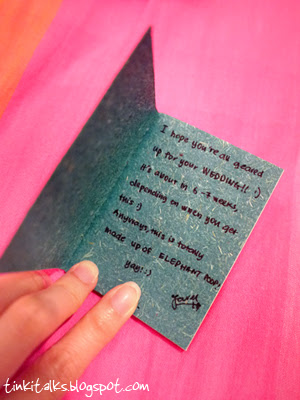 I hope you're all geared
up for your WEDDING!! :)
It's about in 6-7 weeks,
depending on when you get
this :)
Anyways, this is totally
made up of ELEPHANT POOP.
Yay! :)
tinkitalks.blogspot.com